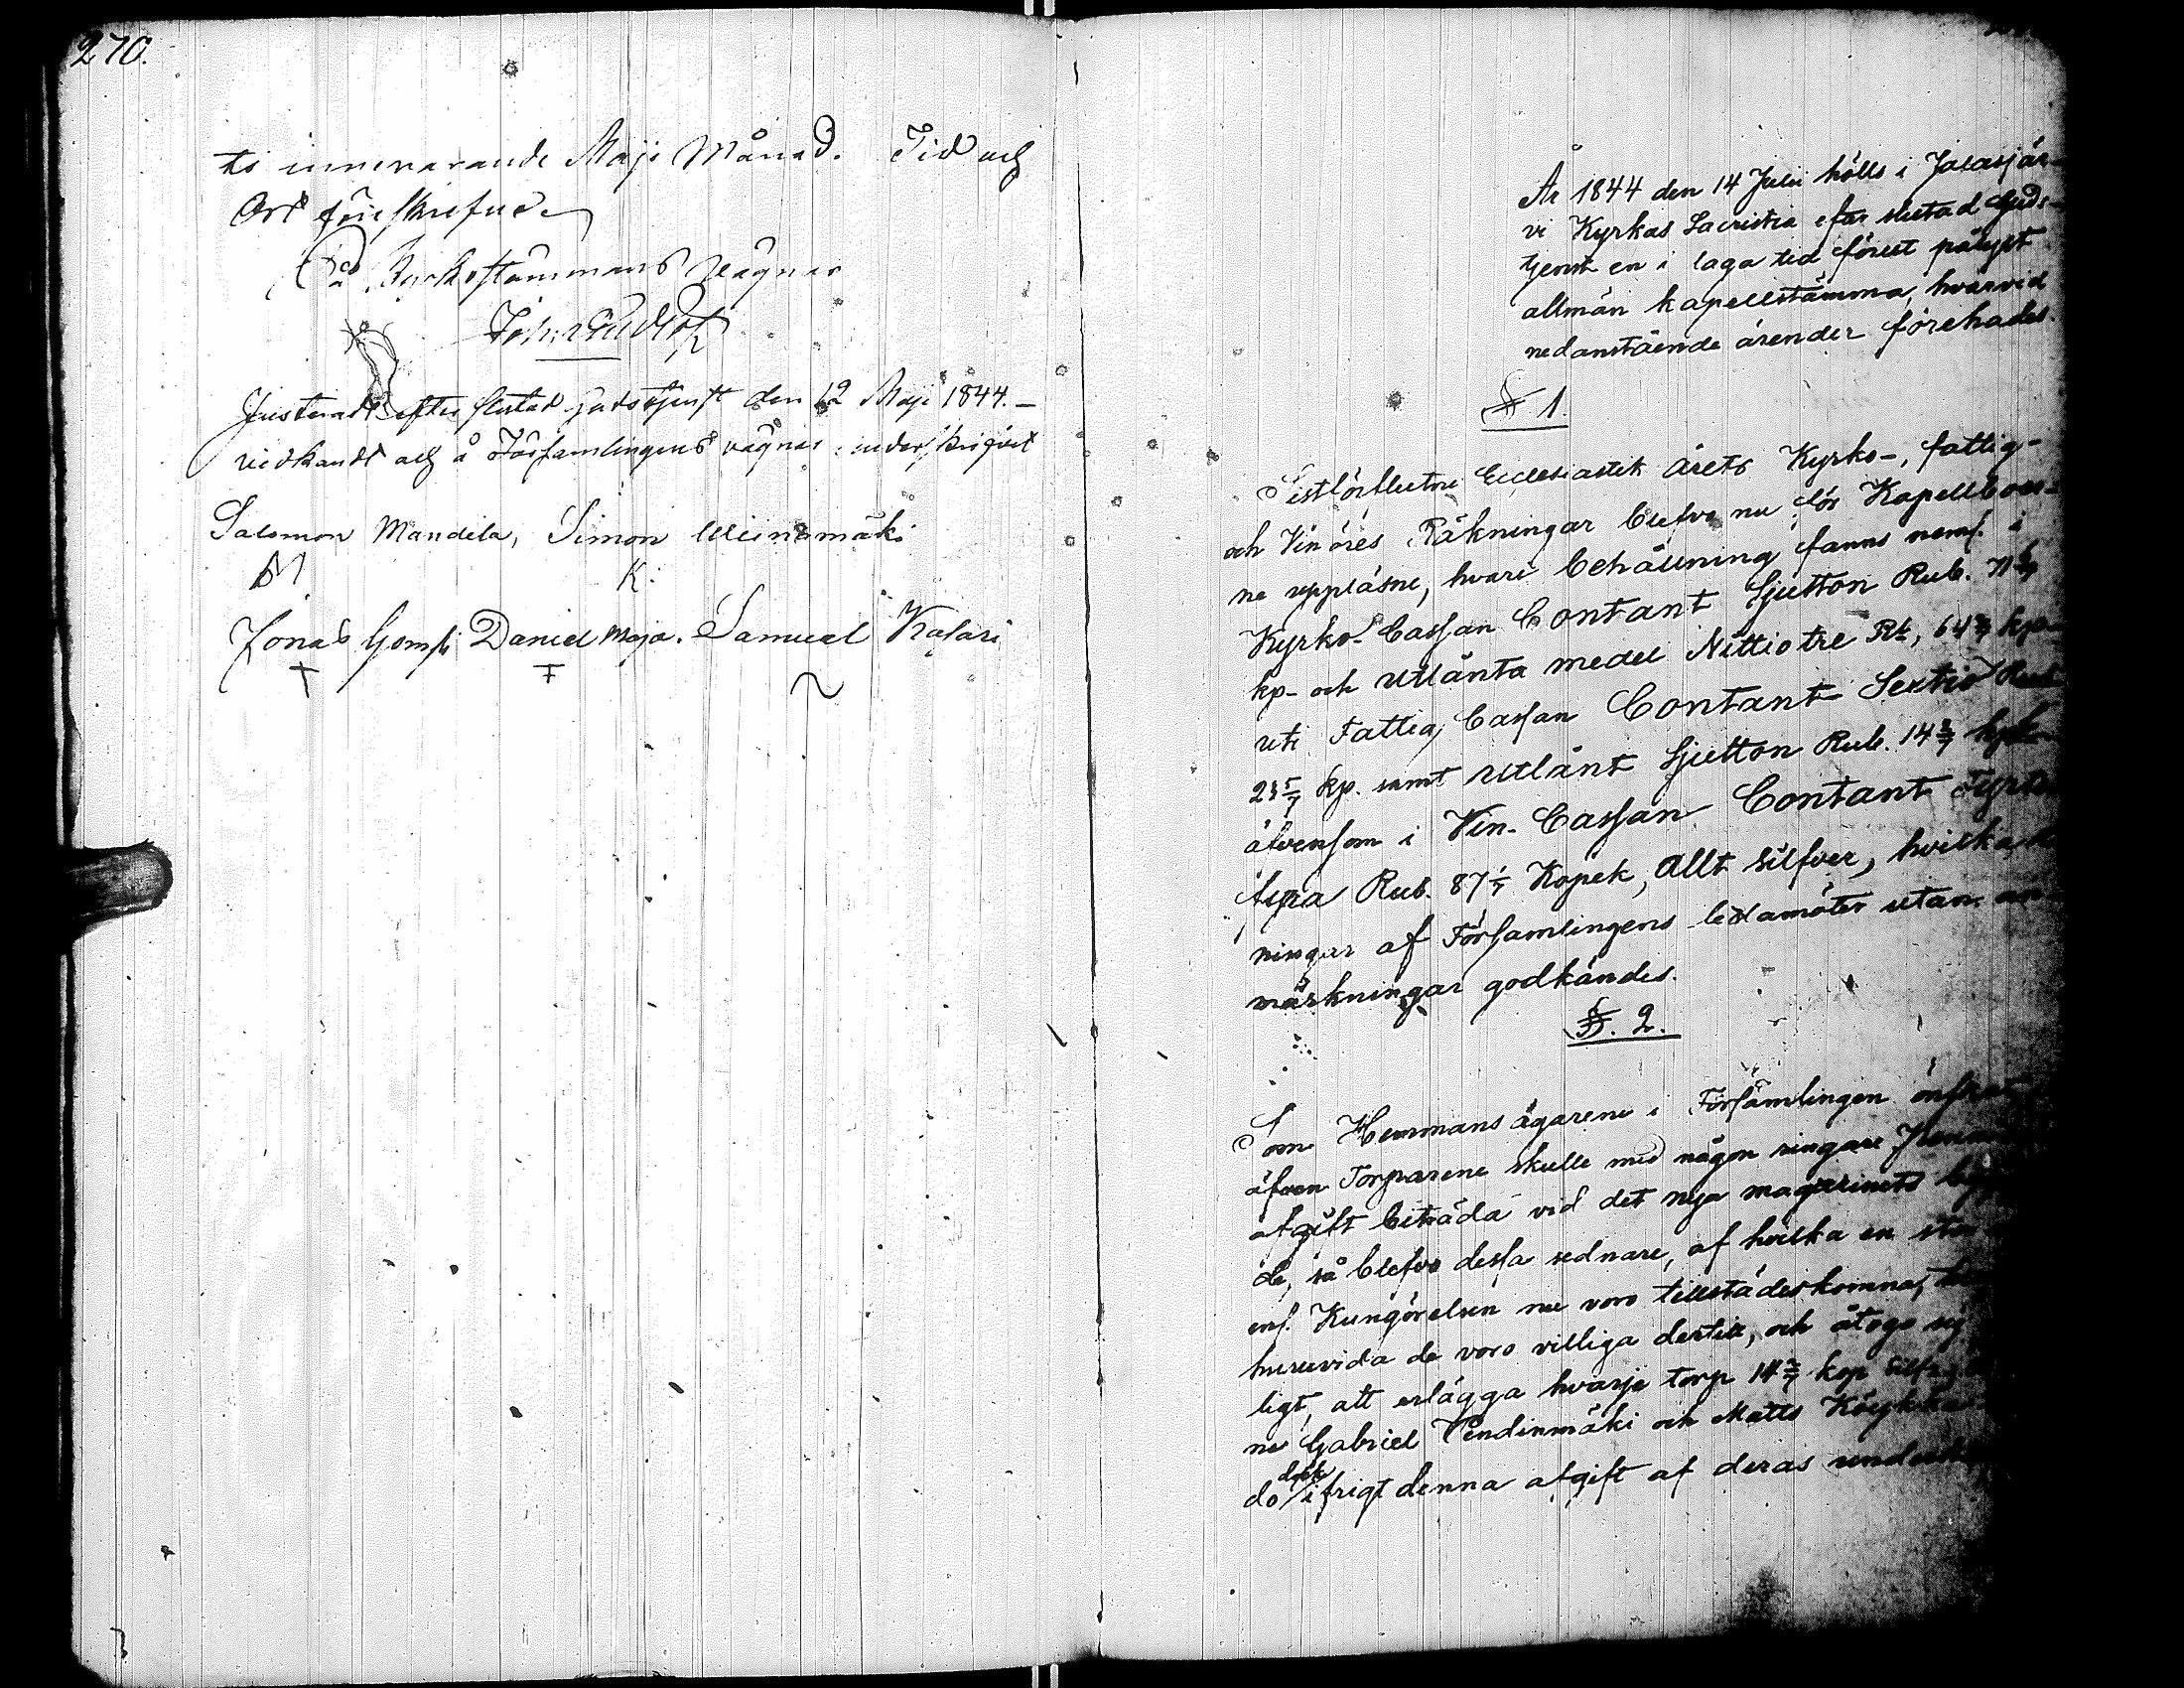 270.
ti innevarande Maji Månad. Tid och
Ort föreskrefne
På Kyrkostämmans vägnar
Justeradt efter slutad gudstjenst den 12 Maji 1844. –
vidkändt och å Församlingens vägnar underskrifvet
Salomon Mandila, Simon Weinsmäki
M K.
Jonas Gomsi Daniel Maja. Samuel Katari
År 1844 den 14 Julii hölls i Jalasjär-
vi Kyrkas Sacristia efter slutad Guds-
tjenst en i laga tid förut pålyst
allmän kapellstämma, hvarvid
nedanstående ärender förehades.
§ 1.
Sistförflutne Ecclesiastik årets Kyrko-, fattig-
och Vinöres Räkningar blefvo nu för Kapellboer-
ne uppläsne, hvari behållning fanns neml. i
Kyrko-Cassan Contant Sjutton Rub. 71 3/7
kp- och Utlånta medel Nittiotre Rb, 64 2/7 kp
uti Fattig Cassan Contant Sextio Rub
28 5/7 kp. samt Utlånt Sjutton Rub. 14 2/7 kpk
äfvensom i Vin-Cassan Contant Fyrtio
fyra Rub. 87 1/7 Kopek, Allt silfver, hvilka
ningar af Församlingens ledamöter utan an
märkningar godkändes.
§. 2.
Som Hemmans ägarene i Församlingen önskat
äfven Torparene skulle med någon ringare
afgift biträda vid det nya magazinets
de, så blefvo dessa sednare, af hvilka en stor
enl. Kungörelsen nu voro tillstädeskomna,
huruvida de voro villiga dertill, och åtogo sig
ligt, att erlägga hvarje torp 14 2/7 kop Silfr,
ne Gabriel Pendinmäki och Matts
do dock ifrigt denna afgift af deras